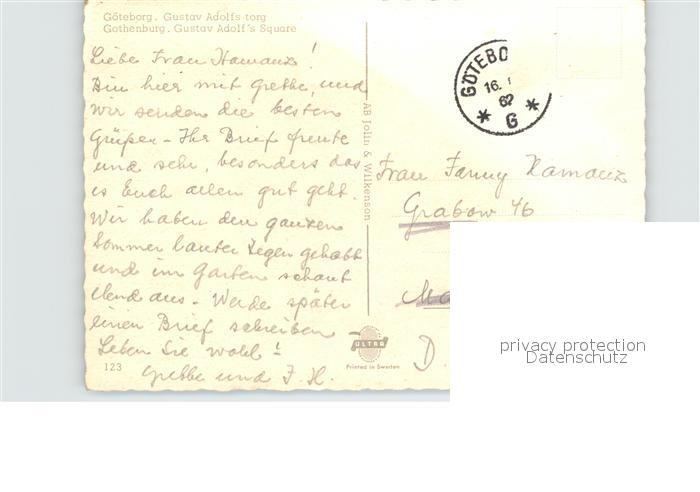 Göteborg. Gustav Adolfs torg
Gothenburg. Gustav Adolf's Square
Liebe Frau !
Bin hier mit Grethe, und
wir senden die besten
Grüße - Ihr Brief freute
uns sehr, besonders das
es Euch allen gut geht.
Wir haben den ganzen
Sommer lauter Regen gehabt
und im Garten schaut
elend aus - Werde später
einen Brief schreiben
Leben Sie wohl!
Grethe und J. H.
123
AB John & Wilkenson
GÖTEBO
16.
62
* G *
Frau Fanny
Grabow 46
Ma
D
ULTRA
Printed in Sweden
privacy protection
Datenschutz